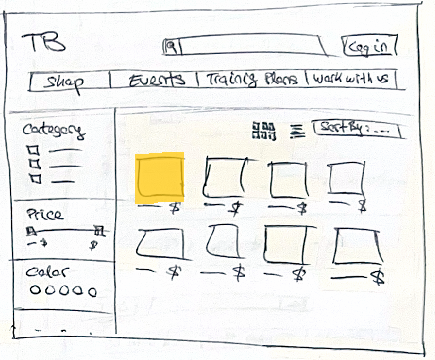 TB
Log in
Shop Events Training Plans work with us
Category
Sort By: ...
$ $ $ $
Price
$ $
$ $ $ $
Color